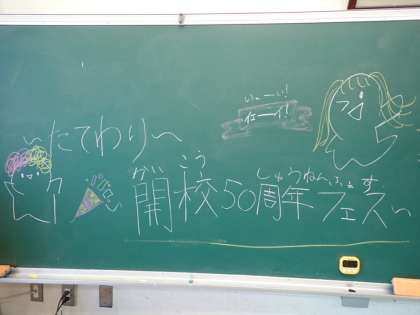 いぇーい!
イェーイ!
~たてわり~
かい こう しゅうねんふぇす
開校50周年フェス~